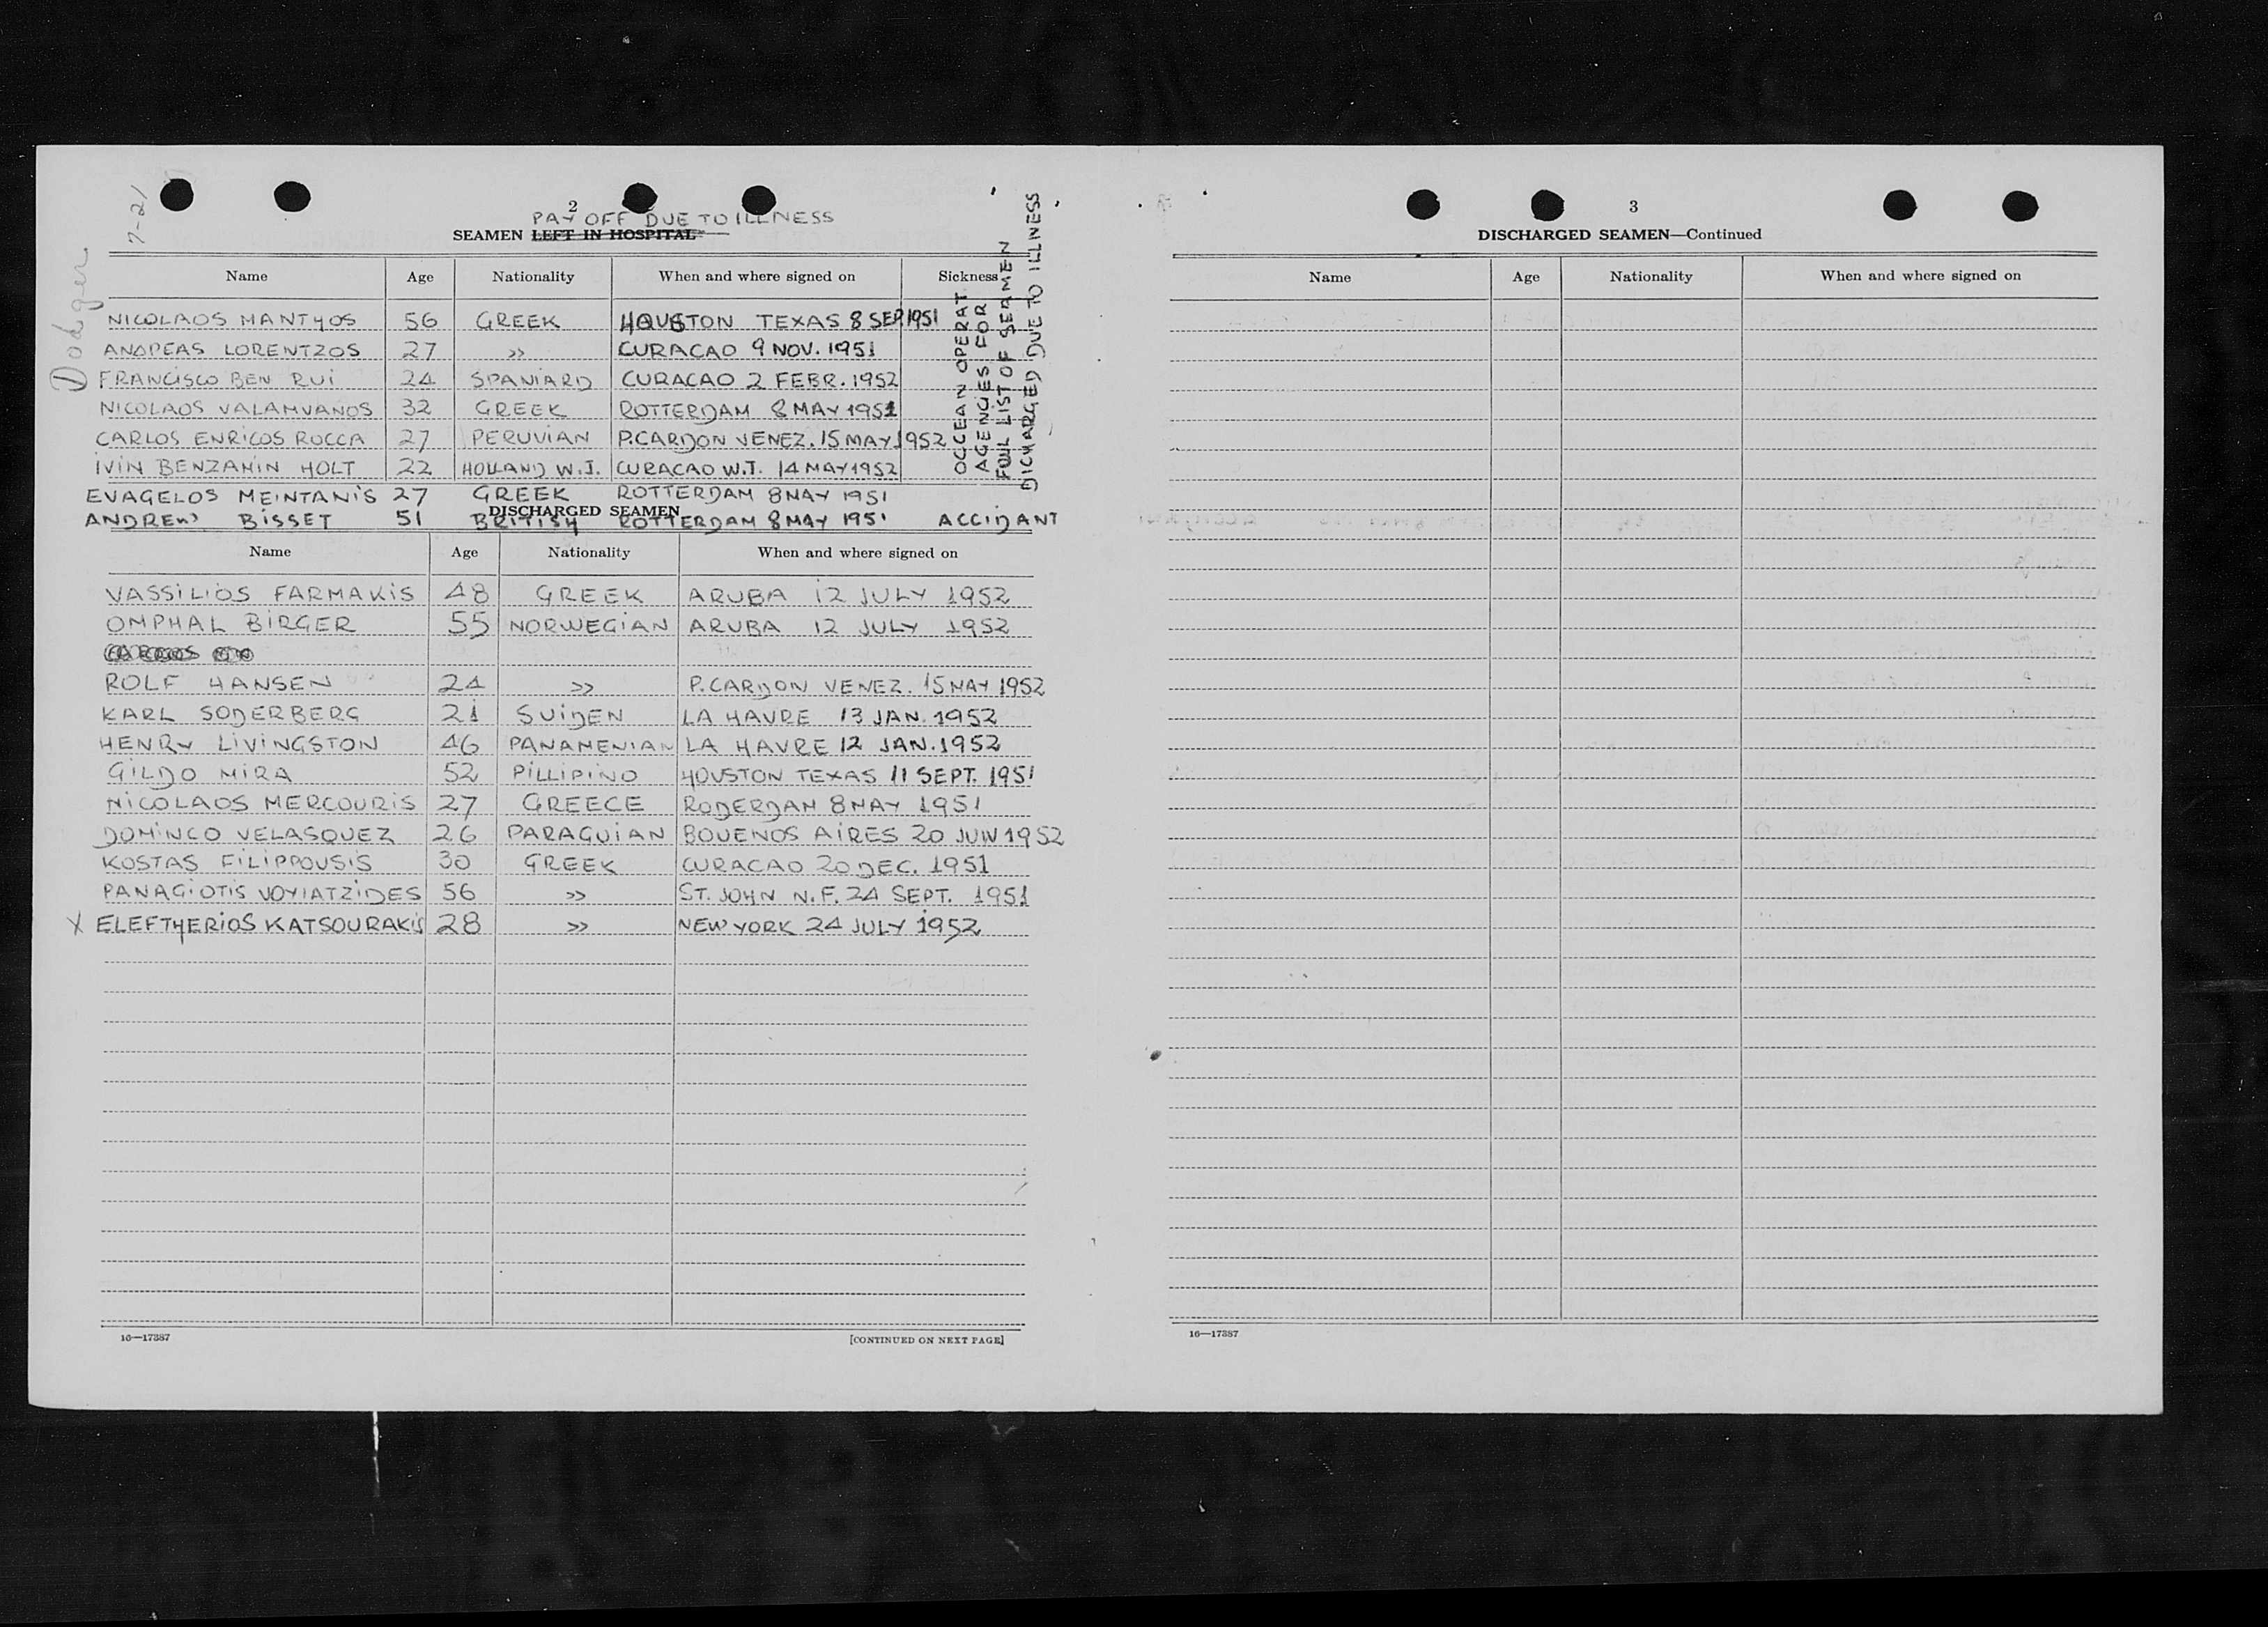 7-21
Dodger
2
PAY OFF DUE TO ILLNESS
SEAMEN LEFT IN HOSPITAL
Name Age Nationality When and where signed on Sickness
NICOLAOS MANTHOS 56 GREEK HOUSTON TEXAS 8 SEP. 1951
ANDREAS LORENTZOS 27 » CURACAO 9 NOV. 1951
FRANCISCO BEN RUI 24 SPANIARD CURACAO 2 FEBR. 1952
NICOLAOS VALAMVANOS 32 GREEK ROTTERDAM 8 MAY 1951
CARLOS ENRICOS ROCCA 27 PERUVIAN P.CARDON VENEZ. 15 MAY 1952
IVIN BENZAMIN HOLT 22 HOLLAND W.I. CURACAO W.I. 14 MAY 1952
EVAGELOS MEINTANIS 27 GREEK ROTTERDAM 8 MAY 1951
ANDREW BISSET 51 BRITISH ROTTERDAM 8 MAY 1951 ACCIDANT
OCCEAN OPERAT
AGENCIES FOR
FULL LIST OF SEAMEN
DICHARGED DUE TO ILLNESS
DISCHARGED SEAMEN
Name Age Nationality When and where signed on
VASSILIOS FARMAKIS 48 GREEK ARUBA 12 JULY 1952
OMPHAL BIRGER 55 NORWEGIAN ARUBA 12 JULY 1952
ROLF HANSEN 24 » P.CARDON VENEZ. 15 MAY 1952
KARL SODERBERG 21 SUIDEN LA HAVRE 13 JAN. 1952
HENRY LIVINGSTON 46 PANAMENIAN LA HAVRE 12 JAN. 1952
GILDO MIRA 52 PILLIPINO HOUSTON TEXAS 11 SEPT. 1951
NICOLAOS MERCOURIS 27 GREECE RODERDAM 8 MAY 1951
DOMINCO VELASQUEZ 26 PARAGUIAN BOUENOS AIRES 20 JUN 1952
KOSTAS FILIPPOUSIS 30 GREEK CURACAO 20 DEC. 1951
PANAGIOTIS VOYIATZIDES 56 » ST. JOHN N.F. 24 SEPT. 1951
X ELEFTHERIOS KATSOURAKIS 28 » NEW YORK 24 JULY 1952
16—17387 [CONTINUED ON NEXT PAGE]
3
DISCHARGED SEAMEN—Continued
Name Age Nationality When and where signed on
16—17387